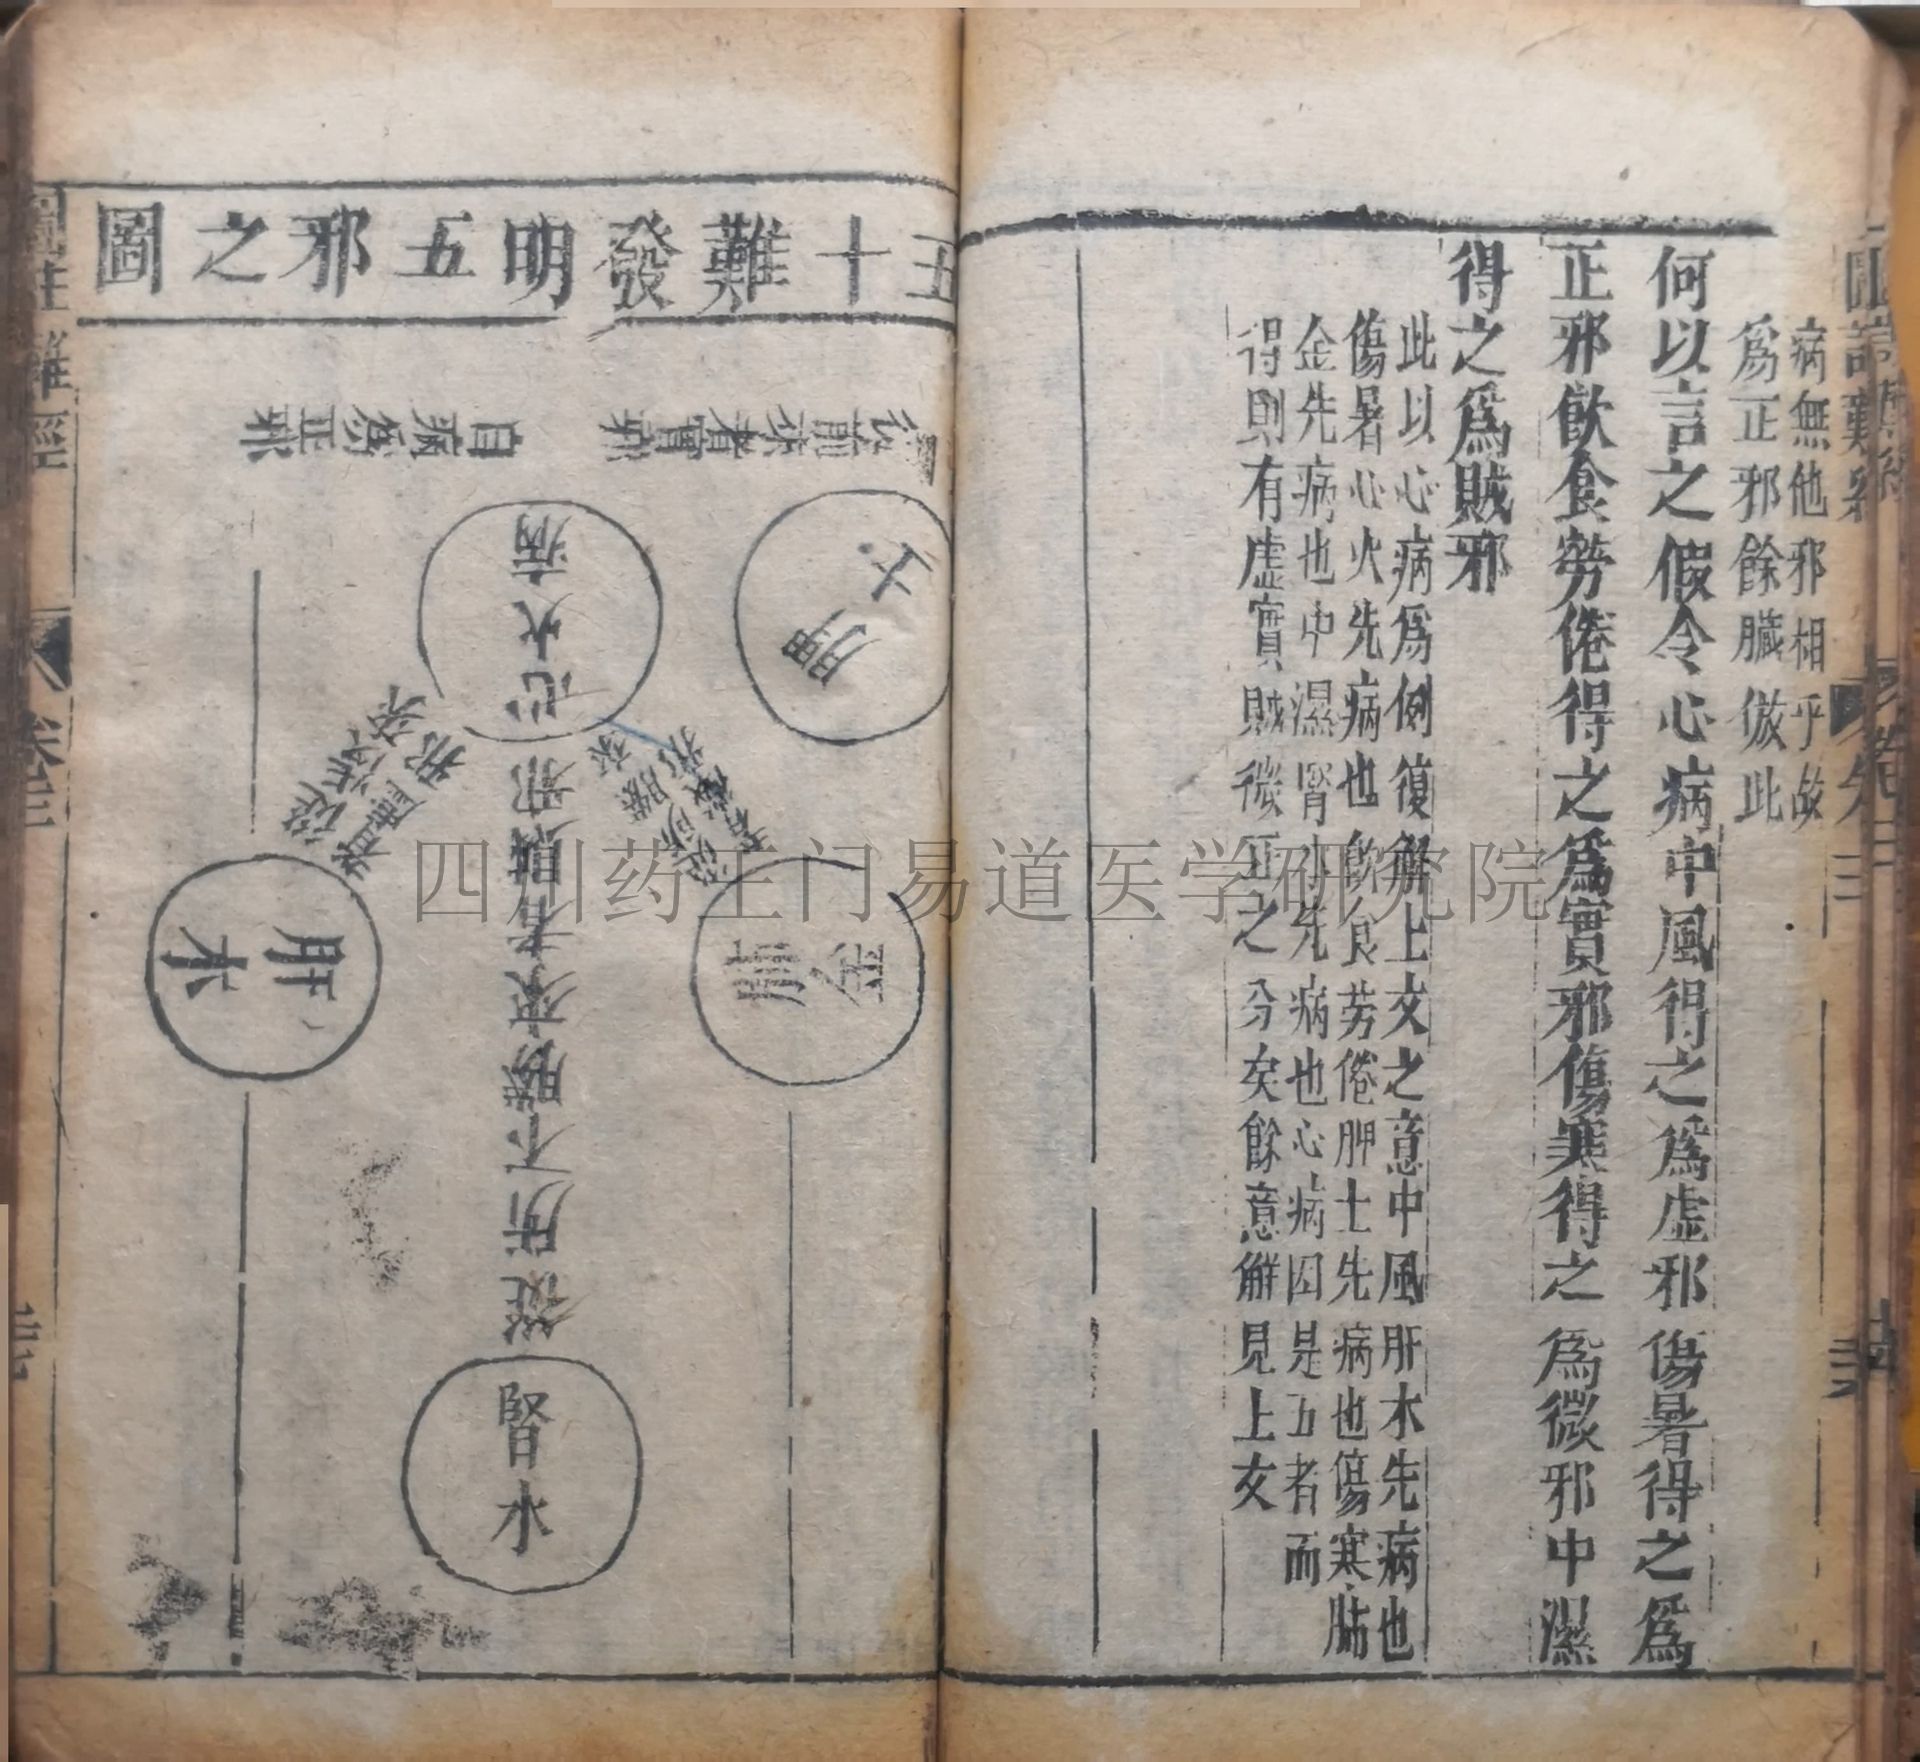 病無他邪相乎故
爲正邪餘臟倣此
何以言之假令心病中風得之爲虛邪傷暑得之爲
正邪飲食勞倦得之爲實邪傷寒得之爲微邪中濕
得之爲賊邪
此以心病爲例復解上文之意中風肝木先病也
傷暑心火先病也飲食勞倦脾土先病也傷寒肺
金先病也中濕腎水先病也心病因是五者而
得則有虛實賊微正之分矣餘意解見上文
五十難發明五邪之圖
從前來者實邪
自病爲正邪
脾土
心火病
從後來
者虛邪
從所勝來
者微邪
肝木
肺金
從所不勝來者賊邪
腎水
圖註難經
卷三
四川药王门易道医学研究院